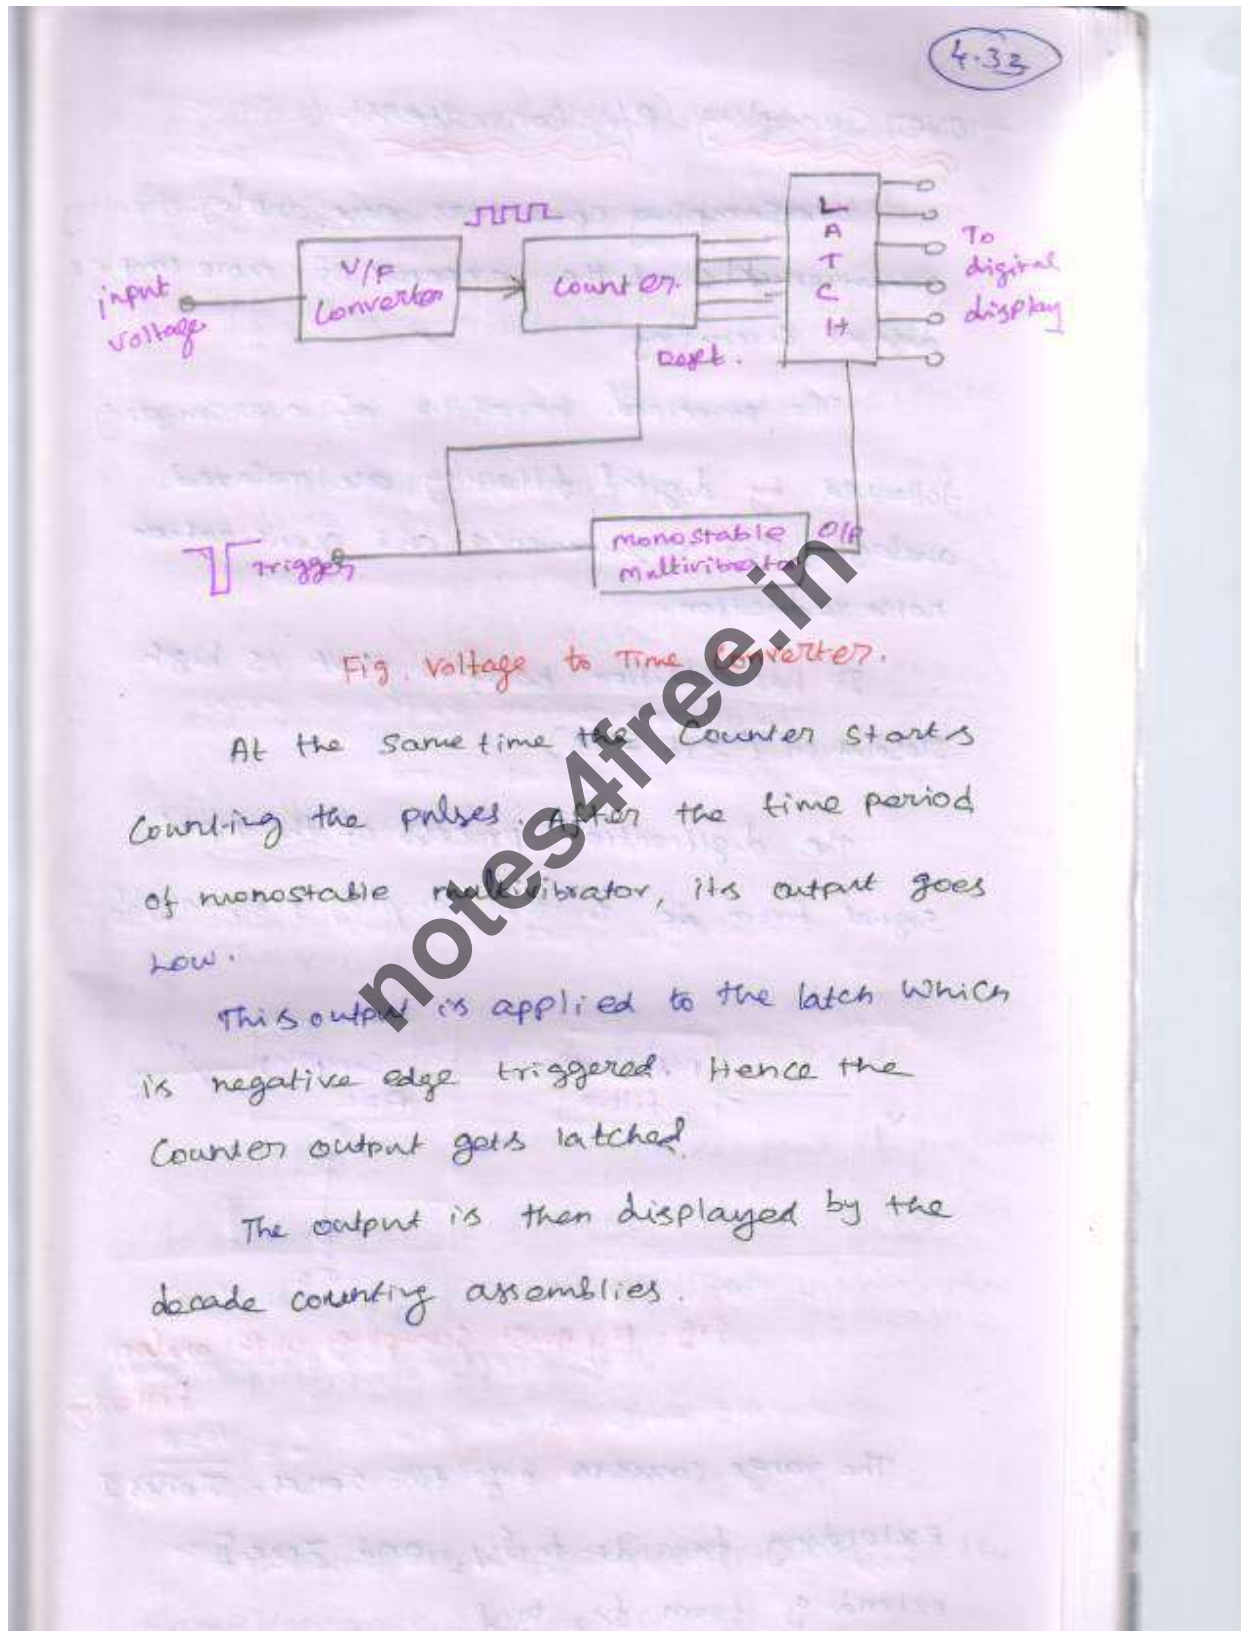 4.33
input
voltage
V/F
Converter
Counter
L
A
T
C
H
To
digital
display
Reset.
Trigger
monostable
multivibrator
O/P
Fig. Voltage to Time Converter.
At the same time the Counter starts
Counting the pulses. After the time period
of monostable multivibrator, its output goes
Low.
This output is applied to the latch which
is negative edge triggered. Hence the
Counter output gets latched.
The output is then displayed by the
decade counting assemblies.
notes4free.in